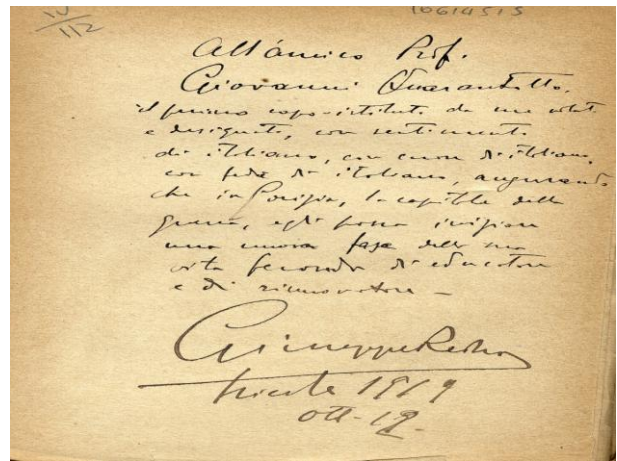 IV
112
10614515
All'amico Prof.
Giovanni Quarantotto.
il primo capo-istituto da me
e designato, con sentimento
di italiano, con cuore di italiano,
con fede di italiano, augurando
che in Gorizia, la capitale della
guerra, egli possa iniziare
una nuova fase della sua
vita feconda di educatore
e di rinnovatore —
Giuseppe
Trieste 1919
ott - 19.